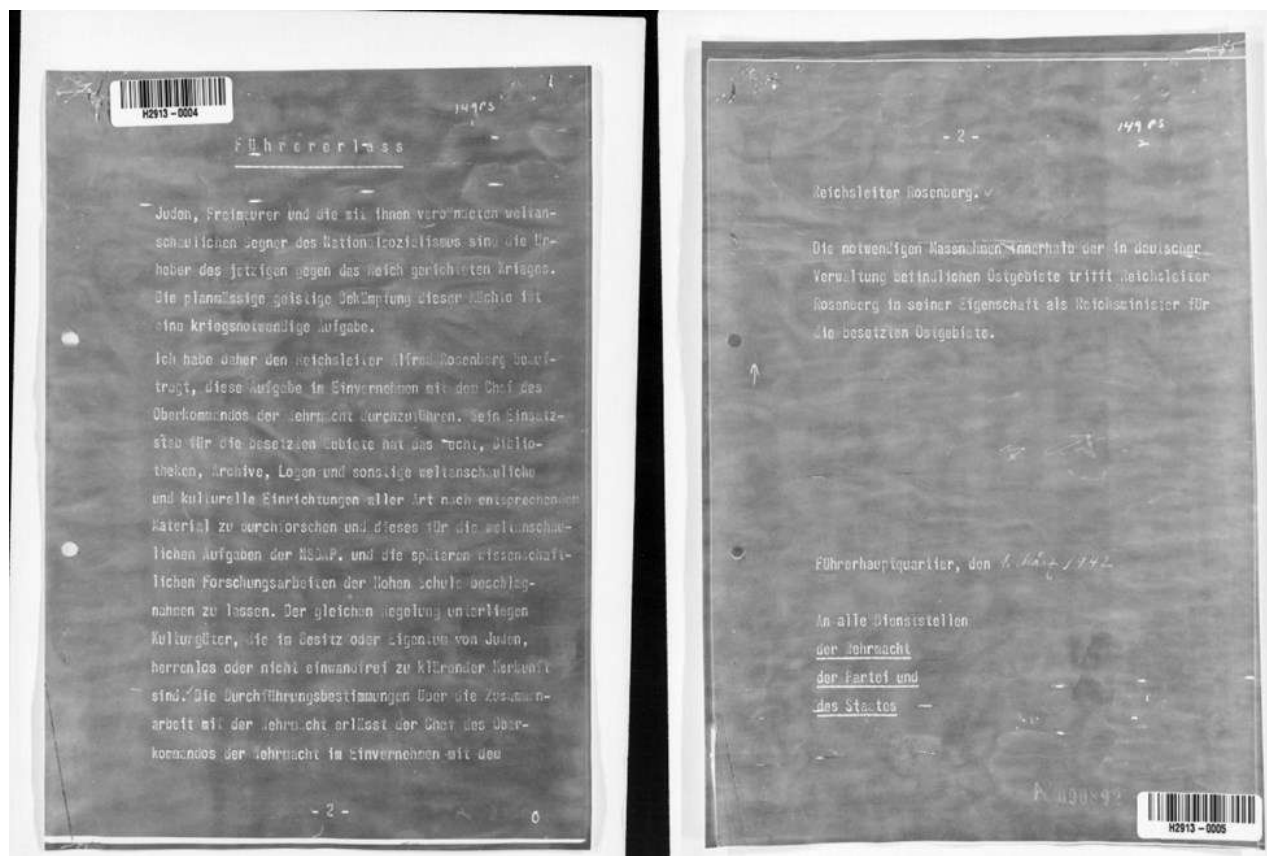 H2913-0004
149 PS
1
Führererlass
Juden, Freimaurer und die mit ihnen verbündeten weltan-
schaulichen Gegner des Nationalsozialismus sind die Ur-
heber des jetzigen gegen das Reich gerichteten Krieges.
Die planmässige geistige Bekämpfung dieser Mächte ist
eine kriegsnotwendige Aufgabe.
Ich habe daher den Reichsleiter Alfred Rosenberg beauf-
tragt, diese Aufgabe im Einvernehmen mit dem Chef des
Oberkommandos der Wehrmacht durchzuführen. Sein Einsatz-
stab für die besetzten Gebiete hat das Recht, Biblio-
theken, Archive, Logen und sonstige weltanschauliche
und kulturelle Einrichtungen aller Art nach entsprechendem
Material zu durchforschen und dieses für die weltanschau-
lichen Aufgaben der NSDAP. und die späteren wissenschaft-
lichen Forschungsarbeiten der Hohen Schule beschlag-
nahmen zu lassen. Der gleichen Regelung unterliegen
Kulturgüter, die im Besitz oder Eigentum von Juden,
herrenlos oder nicht einwandfrei zu klärender Herkunft
sind. Die Durchführungsbestimmungen über die Zusammen-
arbeit mit der Wehrmacht erlässt der Chef des Ober-
kommandos der Wehrmacht im Einvernehmen mit dem
- 2 -
0
- 2 -
149 PS
2
Reichsleiter Rosenberg.
Die notwendigen Massnahmen innerhalb der in deutscher
Verwaltung befindlichen Ostgebiete trifft Reichsleiter
Rosenberg in seiner Eigenschaft als Reichsminister für
die besetzten Ostgebiete.
Führerhauptquartier, den 1. März 1942
An alle Dienststellen
der Wehrmacht
der Partei und
des Staates
H2913-0005